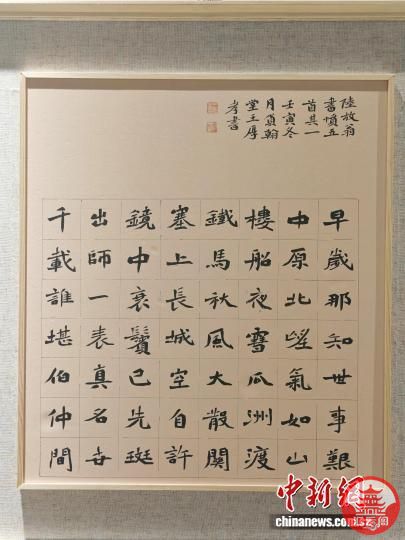 陸放翁
書憤五
首其一
壬寅冬
月翰
堂王厚
孝書
早歲那知世事艱
中原北望氣如山
樓船夜雪瓜洲渡
鐵馬秋風大散關
塞上長城空自許
鏡中衰鬢已先斑
出師一表真名世
千載誰堪伯仲間
中新
chinanews.com